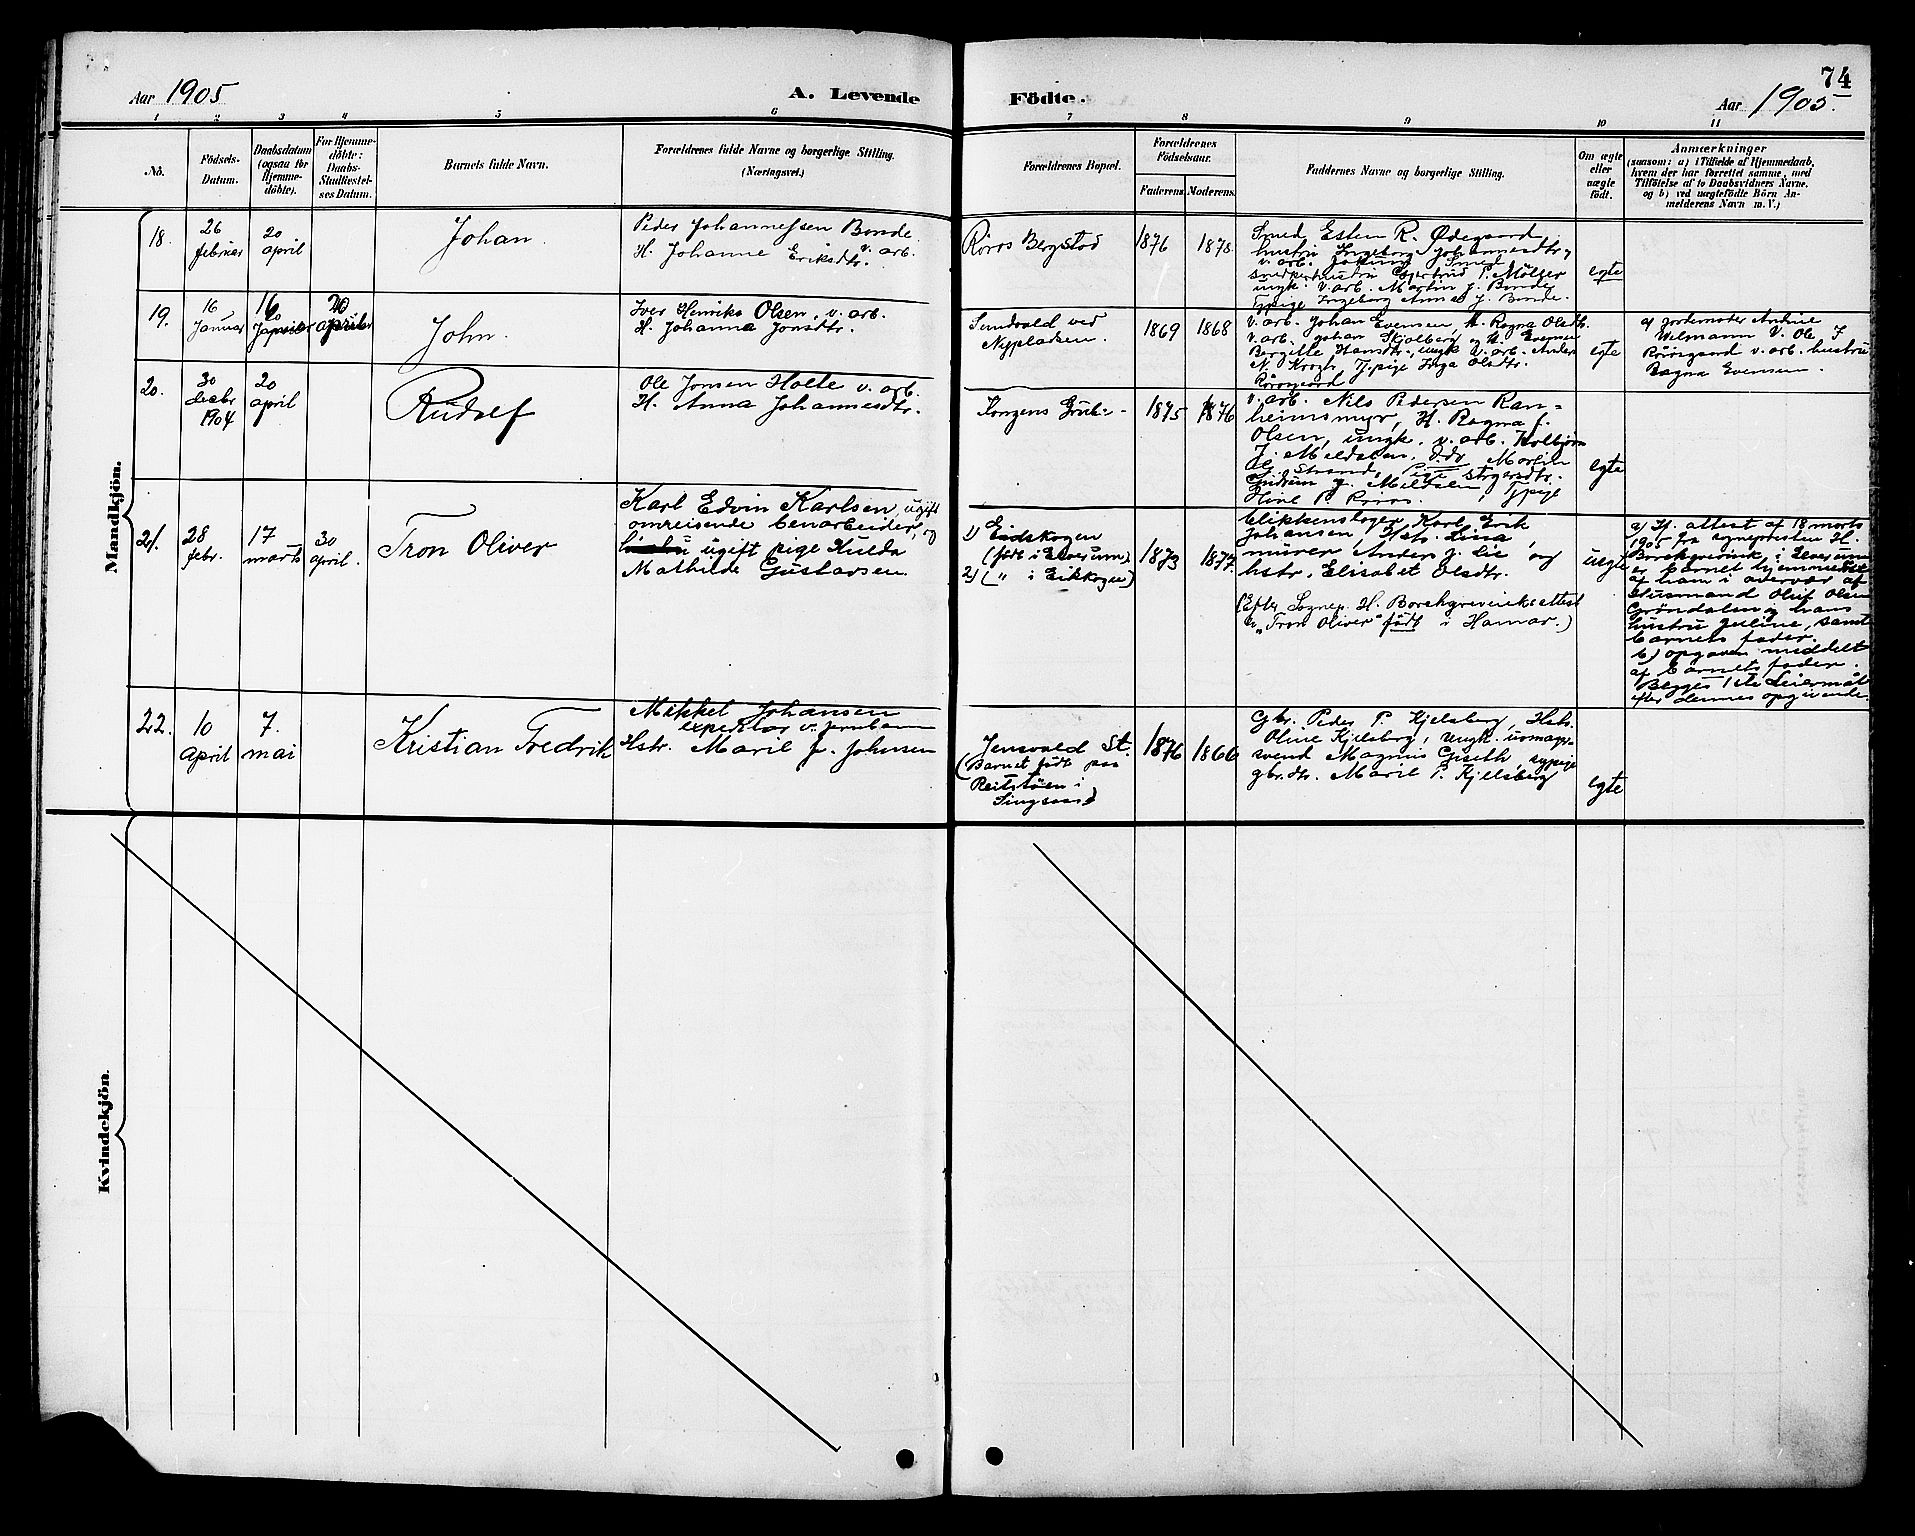 74
Aar 1905
A. Levende
Födte.
Aar 1905.
1 2 3 4 5 6 7 8 9 10 11
No.
Födsels-
Datum.
Daabsdatum
(ogsaa for
Hjemme-
döbte).
For Hjemme-
döbte:
Daabs-
Stadfæstel-
ses Datum.
Barnets fulde Navn.
Forældrenes fulde Navne og borgerlige Stilling.
(Næringsvei.)
Forældrenes Bopæl.
Forældrenes
Födselsaar.
Faderens Moderens.
Faddernes Navne og borgerlige Stilling.
Om ægte
eller
uægte
født.
Anmærkninger
(saasom: a) i Tilfælde af Hjemmedaab,
hvem der har forrettet samme, med
Tilföielse af to Daabsvidners Navne,
og b) ved uægtefödte Börn An-
melderens Navn m. V.)
Mandkjön.
18.
26
februar
20
april
Johan.
Peder Johannessen Bonde
v. arb.
H. Johanne Eriksdtr.
Röros Bergstad
1876
1878
Smed Esten R. Ødegaard,
hustru Ingeborg Johannesdtr,
Gjertrud P. Mölger
ungk. v. arb. Martin J. Bonde
Ingeborg Anna J. Bonde.
egte
19.
16
Januar
20
april
John.
Iver Henriks Olsen, v. arb.
H. Johanna Jonsdtr.
Sundvold ved
Nypladsen.
1869
1868
v. arb. Johan Evensen, H. Ragna Olsdtr.
v. arb. Johan Skjølberg, og H.
Borgitte Hansdtr., ungk. v. arb. Anders
N. Krogh, pige Inga Olsdtr.
egte
a) jordemoder Andrine
Velmann V. Ole I
v. arb. hustru
Ragna Evensen.
20.
30
decbr
1904
20
april
Rudolf
Ole Jonsen Holte v. arb.
H. Anna Johannesdtr.
Kongens Grube
1875
1876
v. arb. Nils Pedersen Ran=
heimsmyr, H. Ragna J.
Olsen, ungk. v. arb. Kolbjørn
J. Meldalen,
egte
21.
28
febr.
17
marts
30
april.
Tron Oliver
Karl Edvin Karlsen, ugift
omreisende benarbeider, og
ugift pige Hulda
Mathilde Gustavsen.
1) Eidskogen
(født i Elverum)
2) (" i Eidskogen)
1873
1877.
blikkenslager Karl Erik
Johansen, Hstr. Lina
murer Anders J. Lie, og
hstr. Elisabet Olsdtr.
(Efter Sognep. H. Borchgrevinks attest
er "Tron Oliver" født i Hamar.)
uegte
a) If. attest af 18 marts
1905 fra sognepresten H.
Borchgrevink, i Elverum
er barnet hjemmedøbt
af ham i overvær af
Husmand Oluf Olsen
Grøndalen og hans
hustru Juline, samt
barnets fader.
b) opgaven meddelt
af barnets fader.
Begges 1ste Leiermål
efter dennes opgivende.
22.
10
april
7.
mai
Kristian Fredrik
Mikkel Johansen
v. jernbanen
Hstr. Maril J. Johnsen
Jensvold St.
(Barnet født paa
Reitstøen i
Singsaas)
1876
1866
Gbr. Peder P. Kjelsberg, Hstr.
Oline Kjelsberg, ungk. urmager-
svend Magnus Giseth, sypige
gbr.dtr. Maril P. Kjelsberg
egte
Kvindekjön.